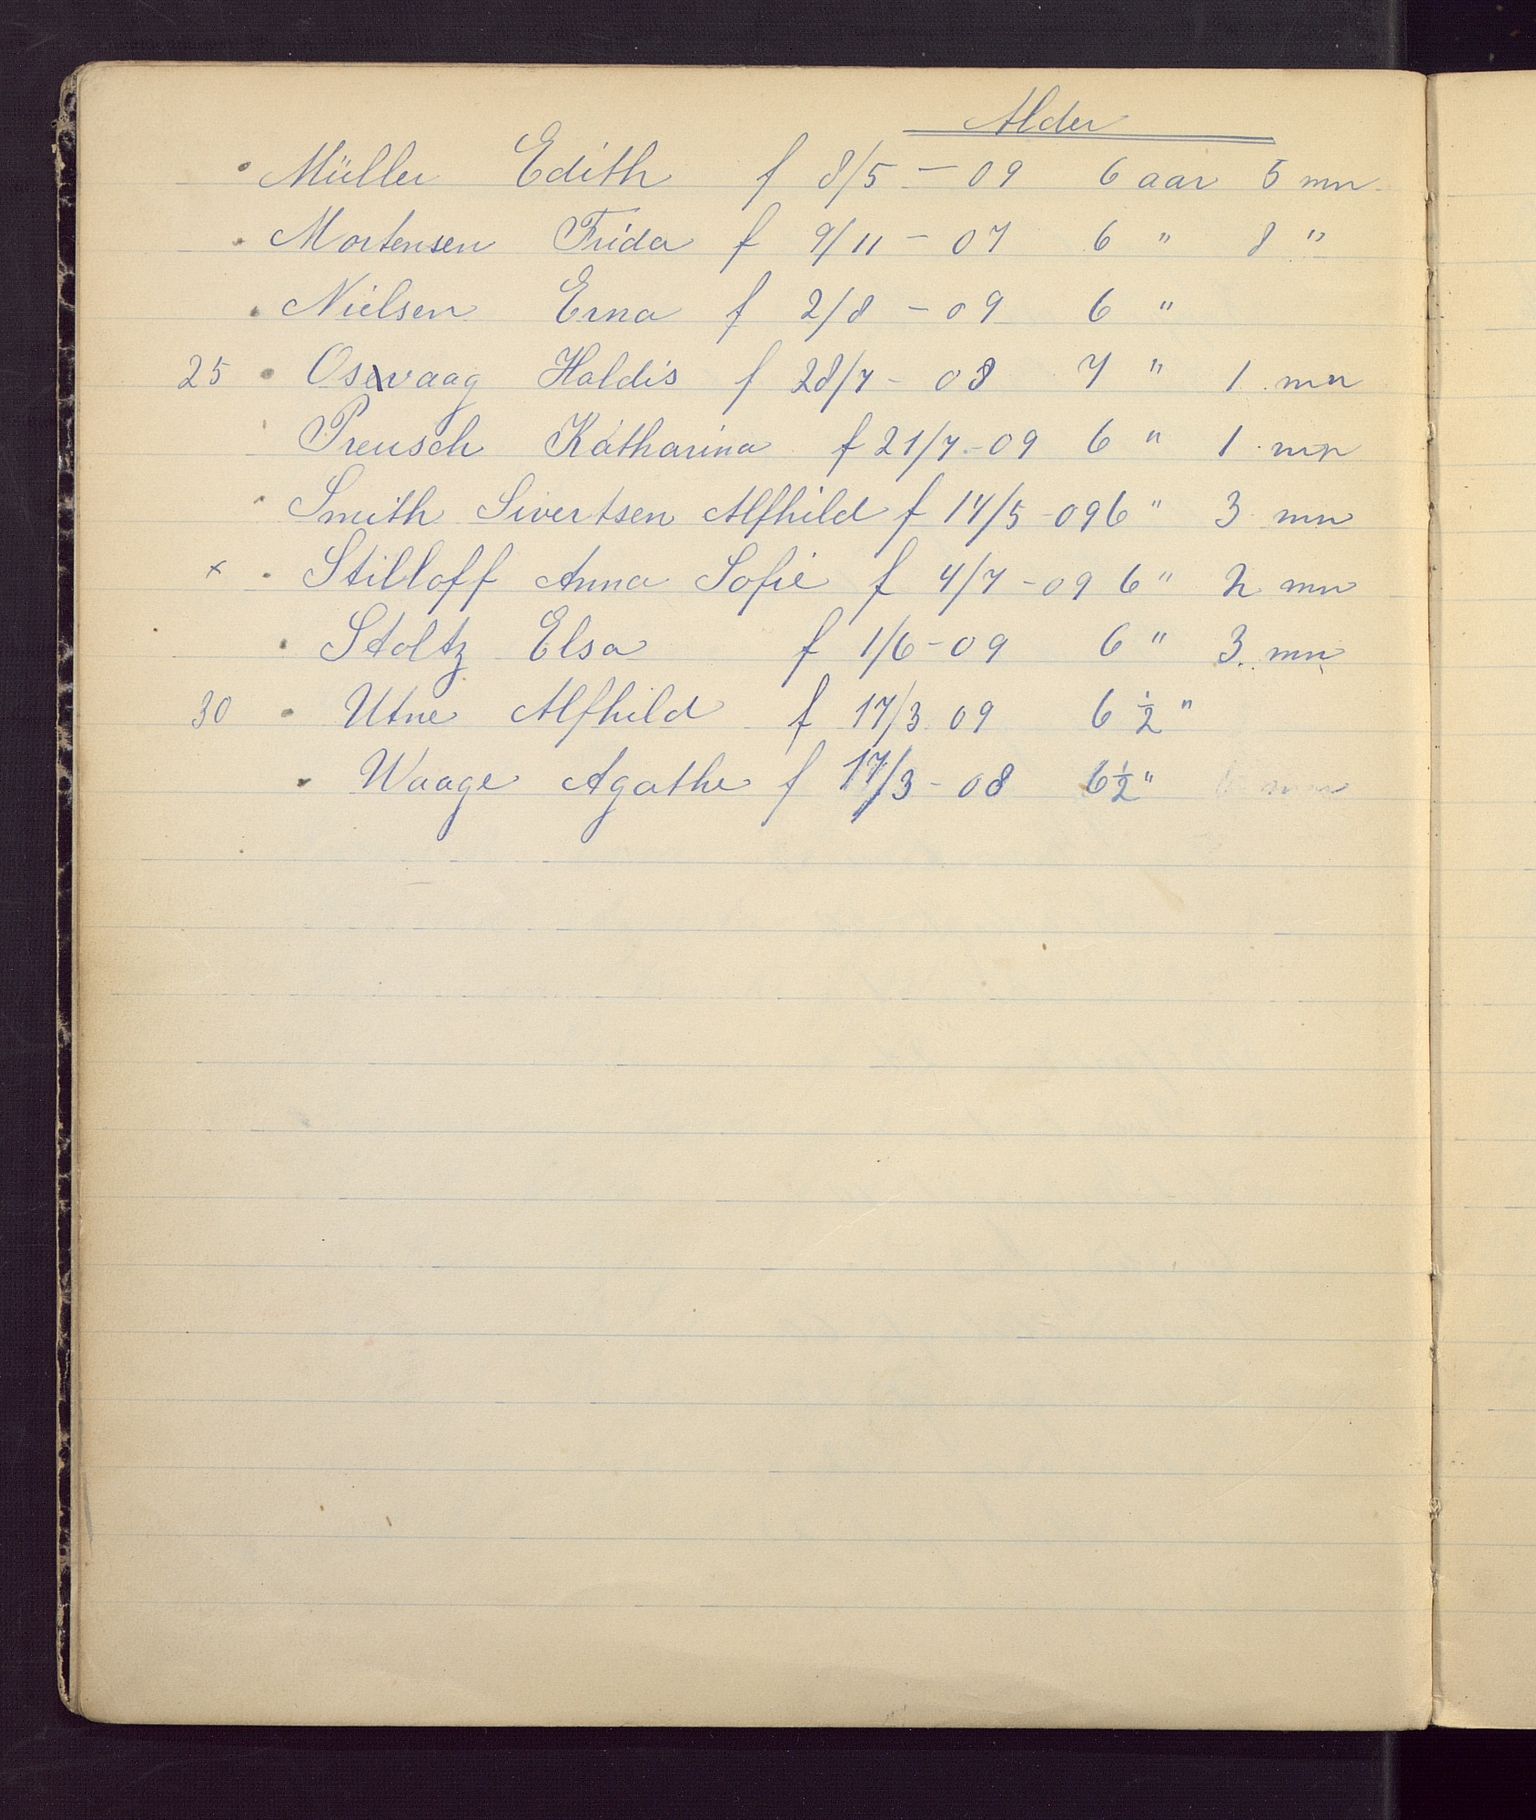 Alder
Müller Edith f 8/5 - 09 6 aar 5 mn
Mortensen Frida f 9/11 - 07 6 " 8 "
Nielsen Erna f 2/8 - 09 6 "
25 Osevaag Haldis f 28/7 - 08 7 " 1 mn
Preusch Katharina f 21/7 - 09 6 " 1 mn
Smith Sivertsen Alfhild f 14/5 - 09 6 " 3 mn
x Stilloff Anna Sofie f 4/7 - 09 6 " 2 mn
Stoltz Elsa f 1/6 - 09 6 " 3 mn
30 Utne Alfhild f 17/3 09 6 1/2 "
Waage Agathe f 17/3 - 08 6 1/2 "